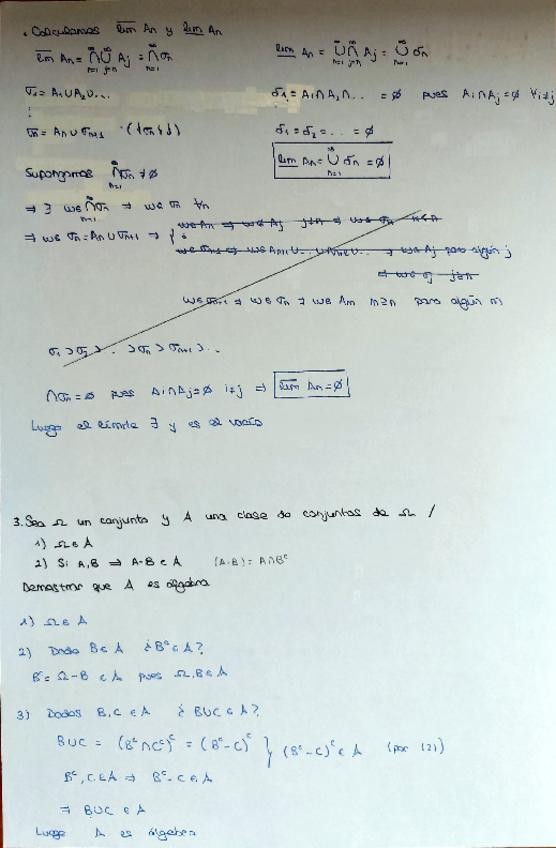 . Calculamos lim An y lim An
lim An = ∩ ∪ Aj = ∩ σn
n=1 j=n n=1
lim An = ∪ ∩ Aj = ∪ σn
n=1 j=n n=1
σ1 = A1 ∪ A2 ∪ ...
σ1 = A1 ∩ A2 ∩ ... = ∅ pues Ai ∩ Aj = ∅ ∀i≠j
⋮
σn = An ∪ σn+1
σ1 = σ2 = ... = ∅
lim An = ∪ σn = ∅
n=1
Supongamos ∩ σn ≠ ∅
n=1
⇒ ∃ w ∈ ∩ σn ⇒ w ∈ σn ∀n
n=1
⇒ w ∈ σn = An ∪ σn+1 ⇒
w ∈ σn+1 ⇒ w ∈ σn ⇒ w ∈ Am m≥n para algún m
σ1 ⊃ σ2 ⊃ ... ⊃ σn ⊃ σn+1 ⊃ ...
∩ σn = ∅ pues Ai ∩ Aj = ∅ i≠j ⇒ lim An = ∅
Luego el límite ∃ y es el vacío
3. Sea Ω un conjunto y A una clase de conjuntos de Ω /
1) Ω ∈ A
2) Si A,B ⇒ A-B ∈ A (A-B) = A ∩ Bᶜ
Demostrar que A es álgebra
1) Ω ∈ A
2) Dado B ∈ A ¿Bᶜ ∈ A?
Bᶜ = Ω - B ∈ A pues Ω, B ∈ A
3) Dados B, C ∈ A ¿ B ∪ C ∈ A?
B ∪ C = (Bᶜ ∩ Cᶜ)ᶜ = (Bᶜ - C)ᶜ } (Bᶜ - C)ᶜ ∈ A (por (2))
Bᶜ, C ∈ A ⇒ Bᶜ - C ∈ A
⇒ B ∪ C ∈ A
Luego A es álgebra